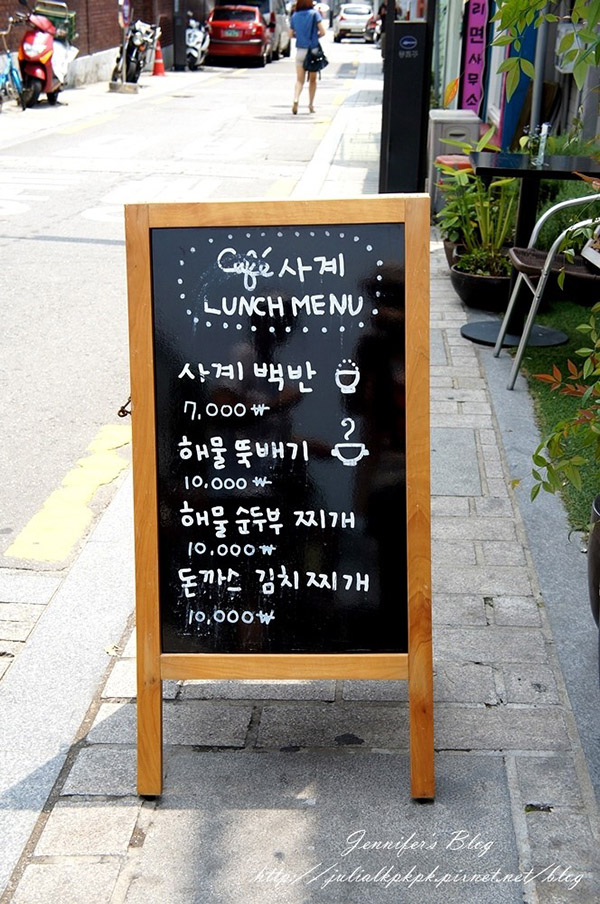 Café 사계
LUNCH MENU
사계 백반
7,000₩
해물 뚝배기
10,000₩
해물 순두부 찌개
10,000₩
돈까스 김치찌개
10,000₩
리면사무소
Jennifer's Blog
http://julialkpkpk.pixnet.net/blog